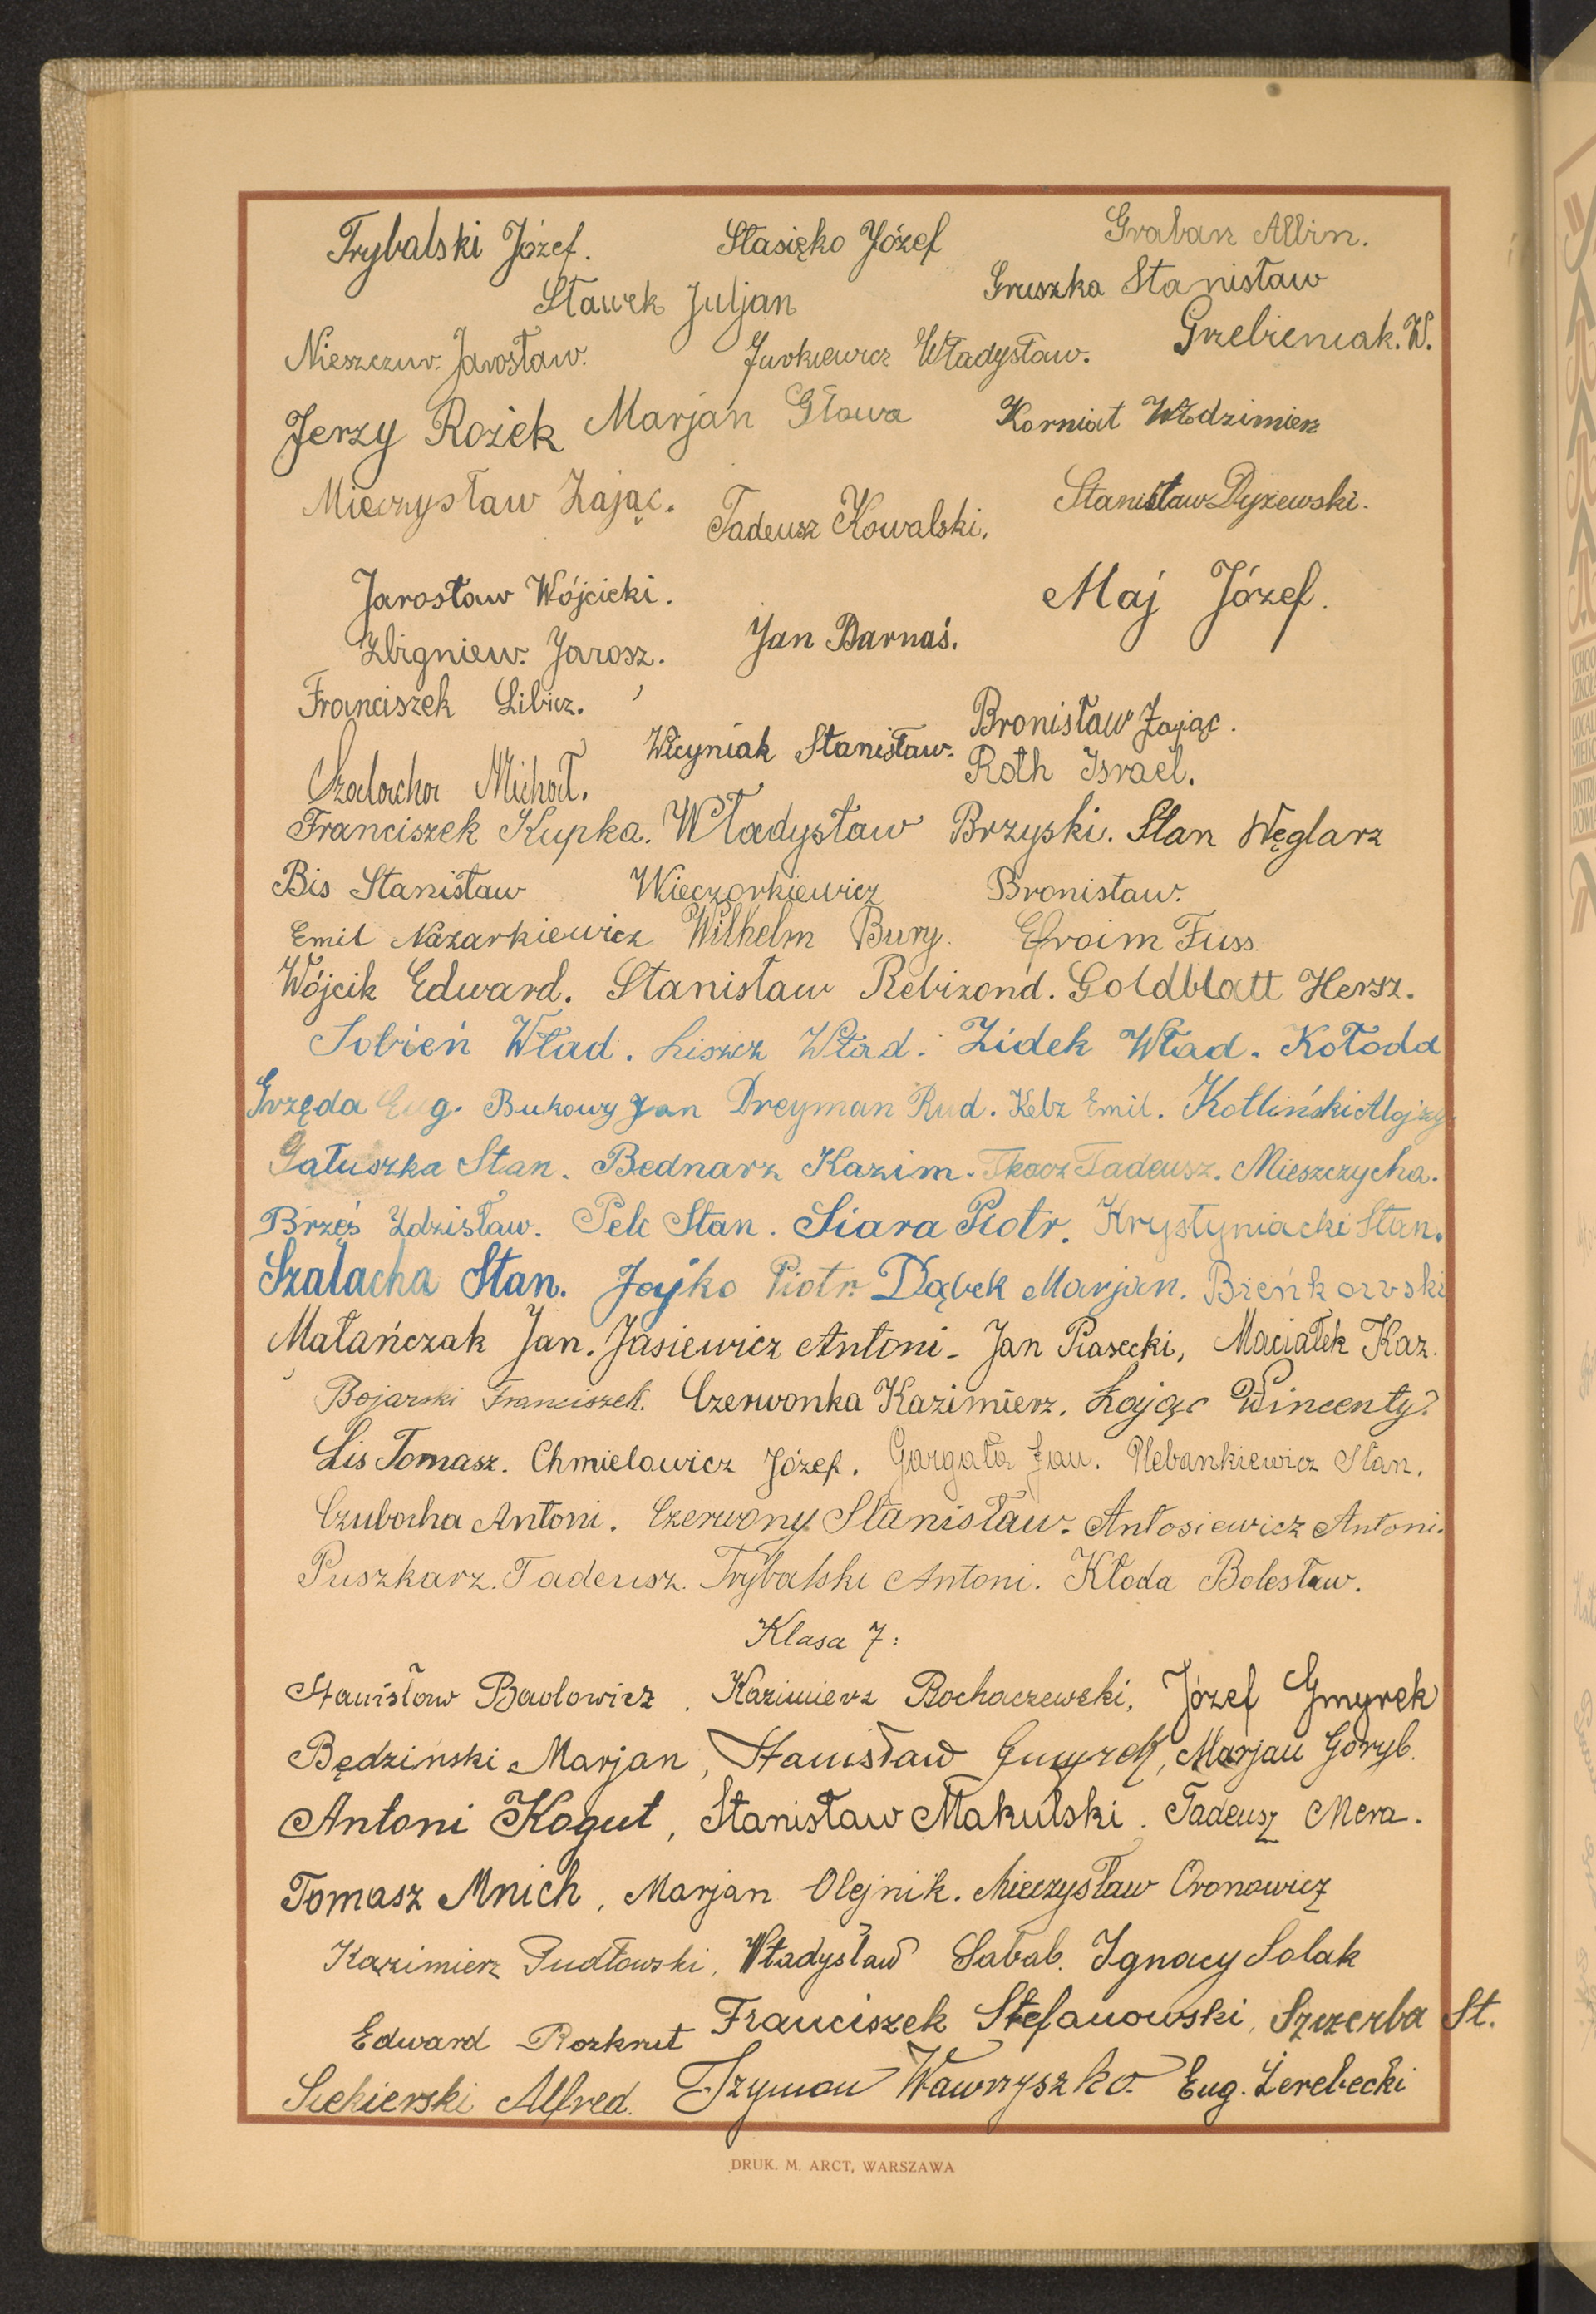 Trybalski Józef. Stasięko Józef Graban Albin.
Sławek Juljan Gruszka Stanisław
Nieszczur. Jarosław. Jurkiewicz Władysław. Grzebieniak. W.
Jerzy Rożek Marjan Głowa Korniat Włodzimierz
Mieczysław Zając. Tadeusz Kowalski. Stanisław Dyżewski.
Jarosław Wójcicki. Maj Józef.
Zbigniew. Jarosz. Jan Barnaś.
Franciszek Libicz. Bronisław Zając.
Szałacha Michał. Wicyniak Stanisław. Roth Israel.
Franciszek Kupka. Władysław Brzyski. Stan Węglarz
Bis Stanisław Wieczorkiewicz Bronisław.
Emil Nazarkiewicz Wilhelm Bury. Efroim Fuss.
Wójcik Edward. Stanisław Rebizond. Goldblatt Hersz.
Sobień Wład. Liszcz Wład. Zidek Wład. Kołoda
Grzęda Eug. Bukowy Jan Dreyman Rud. Kelz Emil. Kotliński Alojzy
Gałuszka Stan. Bednarz Kazim. Tkacz Tadeusz. Mieszczycha.
Brzęś Zdzisław. Pelc Stan. Siara Piotr. Krystyniacki Stan.
Szałacha Stan. Jojko Piotr. Dąbek Marjan. Bieńkowski
Matańczak Jan. Jasiewicz Antoni - Jan Piasecki, Maciałek Kaz.
Bojarski Franciszek. Czerwonka Kazimierz. Zając Wincenty.
Lis Tomasz. Chmielowicz Józef. Gargała Jan. Plebankiewicz Stan.
Czubocha Antoni. Czerwony Stanisław. Antosiewicz Antoni.
Puszkarz. Tadeusz. Trybalski Antoni. Kłoda Bolesław.
Klasa 7:
Stanisław Kazimierz Bochaczewski, Józef Gmyrek
Będziński Marjan, Stanisław Gmyrek, Marjan Goryl.
Antoni Kogut, Stanisław Makulski. Tadeusz Mera.
Tomasz Mnich, Marjan Olejnik. Mieczysław Oronowicz
Kazimierz Pudłowski, Władysław Sabal. Ignacy Solak
Edward Rozkrut Franciszek Stefanowski, Szczerba St.
Siekierski Alfred. Szymon Wawryszko. Eug. Żerebecki
DRUK. M. ARCT, WARSZAWA